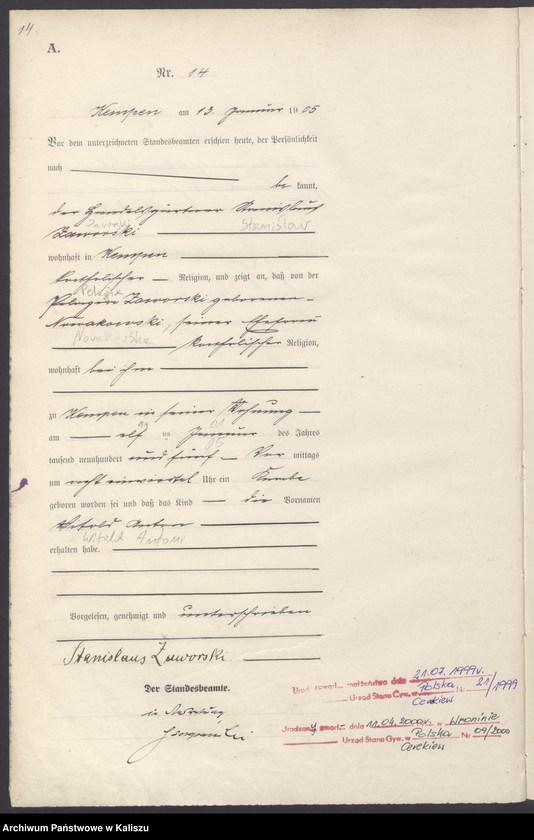 14.
A.
Nr. 14
Kempen am 13. Januar 1905
Vor dem unterzeichneten Standesbeamten erschien heute, der Persönlichkeit
nach
be kannt,
der Handelsgärtner Stanislaus
Zaworski Stanisław
wohnhaft in Kempen
katholischer Religion, und zeigt an, daß von der
Pelagia
Pelagia Zaworski geborenen
Nowakowski, seiner Ehefrau
Nowakowska katholischer Religion,
wohnhaft bei ihm
zu Kempen in seiner Wohnung
am elf ten Januar des Jahres
tausend neunhundert und fünf Vor mittags
um acht einviertel Uhr ein Knabe
geboren worden sei und daß das Kind die Vornamen
Witold Anton
Witold Antoni
erhalten habe.
Vorgelesen, genehmigt und unterschrieben
Stanislaus Zaworski
Der Standesbeamte.
in Vertretung
małżeństwo dnia 21.07.1999r.
Polska
Urząd Stanu Cyw. w Nr 21/1999
Cerekiew
zmarł dnia 11.04.2000r. w Wroninie
Polska
Urząd Stanu Cyw. w Nr 09/2000
Cerekiew
Archiwum Państwowe w Kaliszu